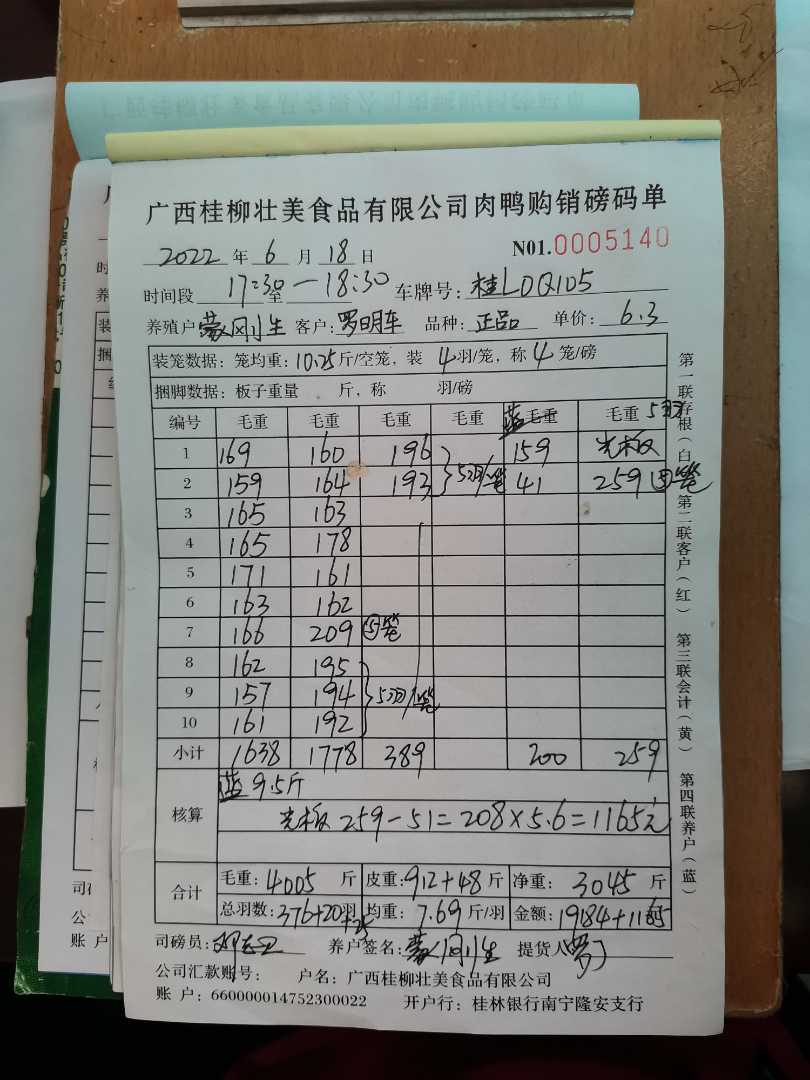 广西桂柳壮美食品有限公司肉鸭购销磅码单
2022 年 6 月 18 日 N01.0005140
时间段 17:30 至 —18:30 车牌号: 桂LDQ105
养殖户 蒙刚生 客户: 罗明车 品种: 正品 单价: 6.3
装笼数据: 笼均重: 10.25 斤/空笼, 装 4 羽/笼, 称 4 笼/磅
捆脚数据: 板子重量 斤, 称 羽/磅
编号 毛重 毛重 毛重 毛重 蓝毛重 毛重 5羽
1 169 160 196 159 光板
2 159 164 193 5羽/笼 41 259 ⑤笼
3 165 163
4 165 178
5 171 161
6 163 162
7 166 209 ⑤笼
8 162 195
9 157 194 5羽/笼
10 161 192
小计 1638 1778 389 200 259
蓝 9.5斤
核算 光板 259-51=208×5.6=1165元
合计 毛重: 4005 斤 皮重: 912+48 斤 净重: 3045 斤
总羽数: 376+20羽 +25 均重: 7.69 斤/羽 金额: 19184+1165
司磅员: 养户签名: 蒙刚生 提货人
公司汇款账号: 户名: 广西桂柳壮美食品有限公司
账 户: 660000014752300022 开户行: 桂林银行南宁隆安支行
第一联存根(白) 第二联客户(红) 第三联会计(黄) 第四联养户(蓝)